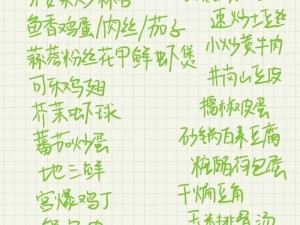 鱼香鸡蛋/肉丝/茄子
蒜蓉粉丝花甲鲜虾煲
可乐鸡翅
芥茉虾球
蕃茄炒蛋
地三鲜
宫爆鸡丁
速炒土豆丝
小炒黄牛肉
井岗山豆皮
擂椒皮蛋
砂锅白菜豆腐
糖醋荷包蛋
干焖豆角
玉米排骨汤